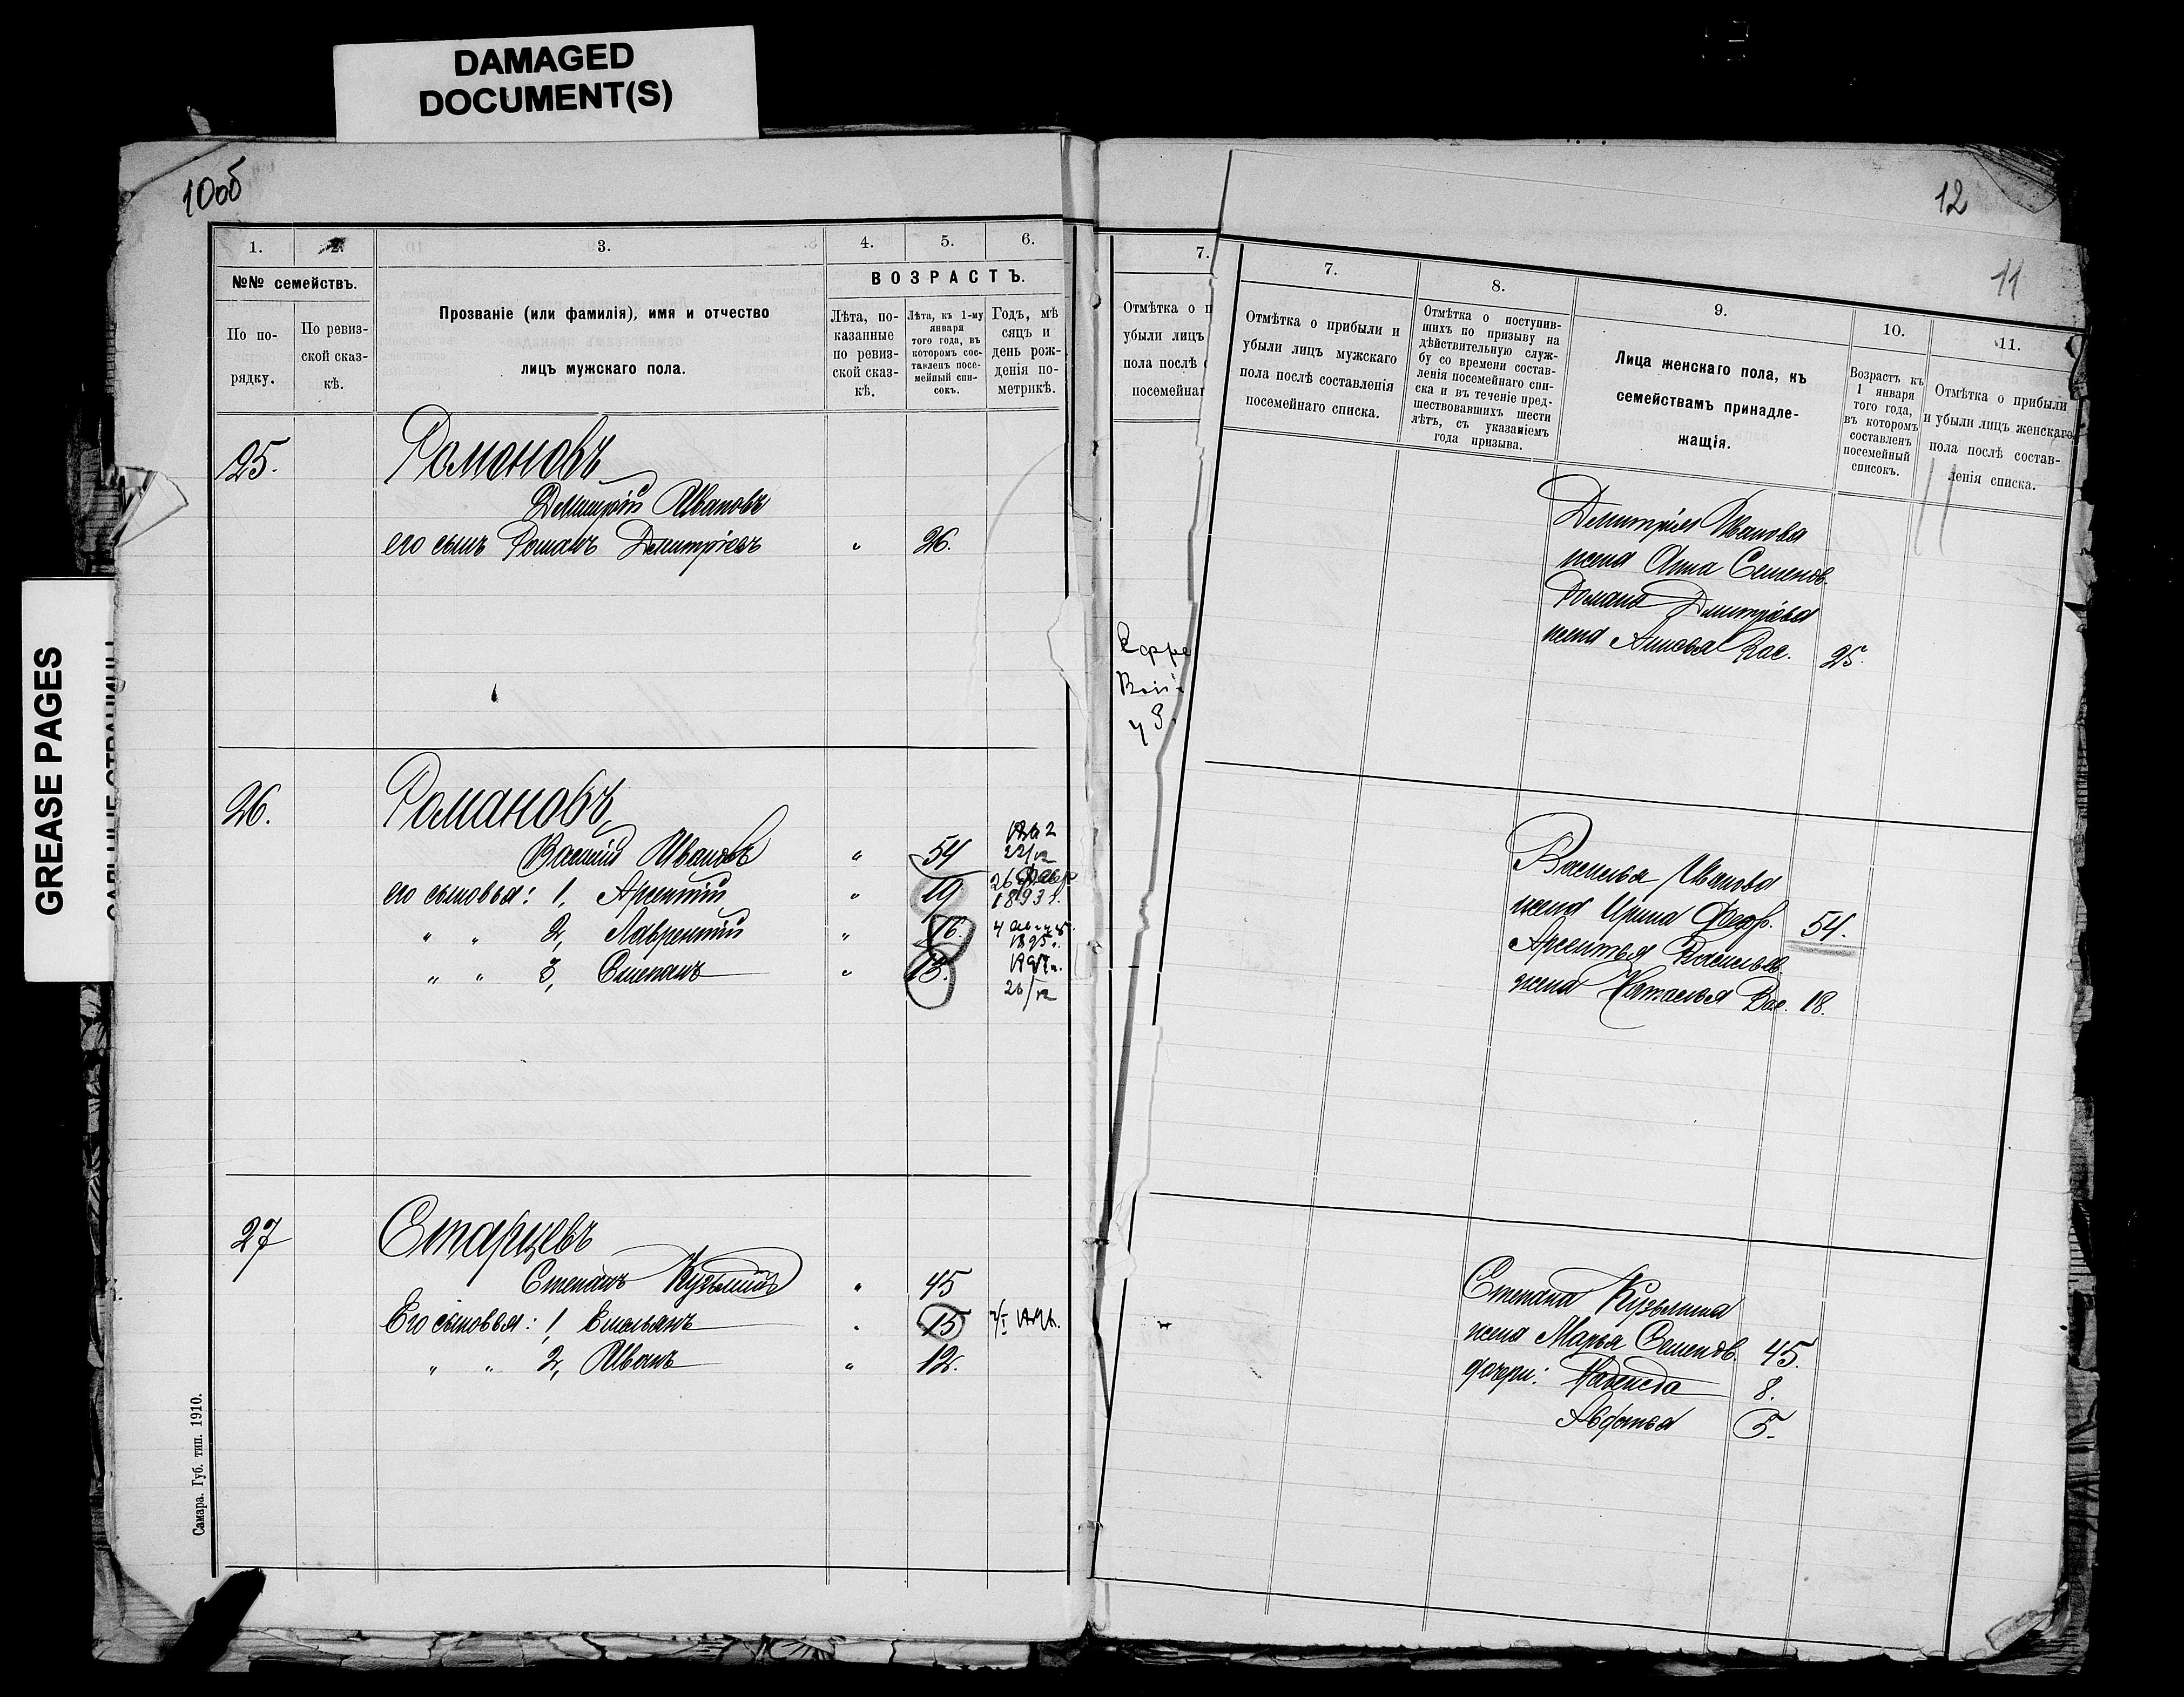 DAMAGED
DOCUMENT(S)
GREASE PAGES
10об
1.
3.
4.
5.
6.
№№ семействъ.
По по-
рядку.
По ревиз-
ской сказ-
кѣ.
Прозваніе (или фамилія), имя и отчество
лицъ мужскаго пола.
ВОЗРАСТЪ.
Лѣта, по-
казанные
по ревиз-
ской сказ-
кѣ.
Лѣта, къ 1-му
января
того года, въ
которомъ сос-
тавленъ посе-
мейный спи-
сокъ.
Годъ, мѣ
сяцъ и
день рож-
денія по-
метрикѣ.
25.
Романовъ
Дмитрій Ивановъ
его сынъ Романъ Дмитріевъ " 26.
26.
Романовъ,
Василій Ивановъ " 54
22/12
его сыновья: 1, Арсентій " 19
26 февр
1893 г.
" " 2, Лаврентій " 16.
1895 г.
" " 3, Степанъ " 13.
26/12
27
Старцевъ
Степанъ Кузьминъ " 45
Его сыновья: 1, Емельянъ " 15
" " 2, Иванъ " 12.
Самара. Губ. тип. 1910.
7.
Отмѣтка о п
убыли лицъ
пола послѣ с
посемейнаг
12
11
7.
8.
9.
10.
11.
Отмѣтка о прибыли и
убыли лицъ мужскаго
пола послѣ составленія
посемейнаго списка.
Отмѣтка о поступив-
шихъ по призыву на
дѣйствительную служ-
бу со времени состав-
ленія посемейнаго спи-
ска и въ теченіе пред-
шествовавшихъ шести
лѣтъ, съ указаніемъ
года призыва.
Лица женскаго пола, къ
семействамъ принадле-
жащія.
Возрастъ къ
1 января
того года,
въ которомъ
составленъ
посемейный
списокъ.
Отмѣтка о прибыли
и убыли лицъ женскаго
пола послѣ состав-
ленія списка.
Дмитрія Иванова
жена Анна Семенов.
Романа Дмитріева
жена Вас. 25.
Василья Иванова
жена Ирина Фед. 54.
Арсентья Васильев.
жена Наталья Вас. 18.
Степана Кузьмина
жена Марья Семенов. 45.
дочери: Надежда 8.
Авдотья 5.